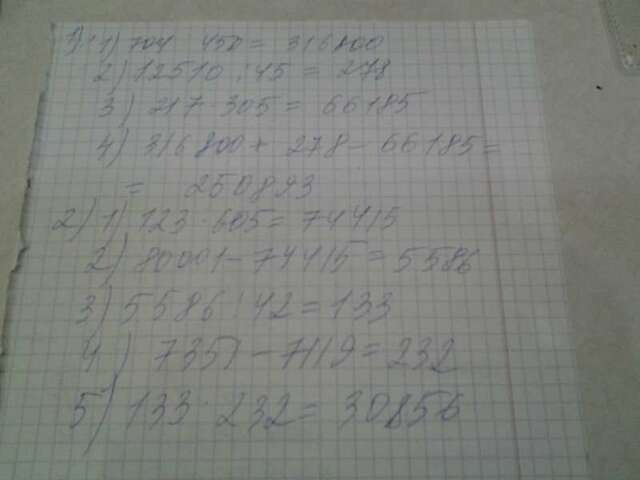 1) 1) 704 450 = 316800
2) 12510 : 45 = 278
3) 217 · 305 = 66185
4) 316800 + 278 - 66185 =
= 250893
2) 1) 123 · 605 = 74415
2) 80001 - 74415 = 5586
3) 5586 : 42 = 133
4) 7351 - 7119 = 232
5) 133 · 232 = 30856